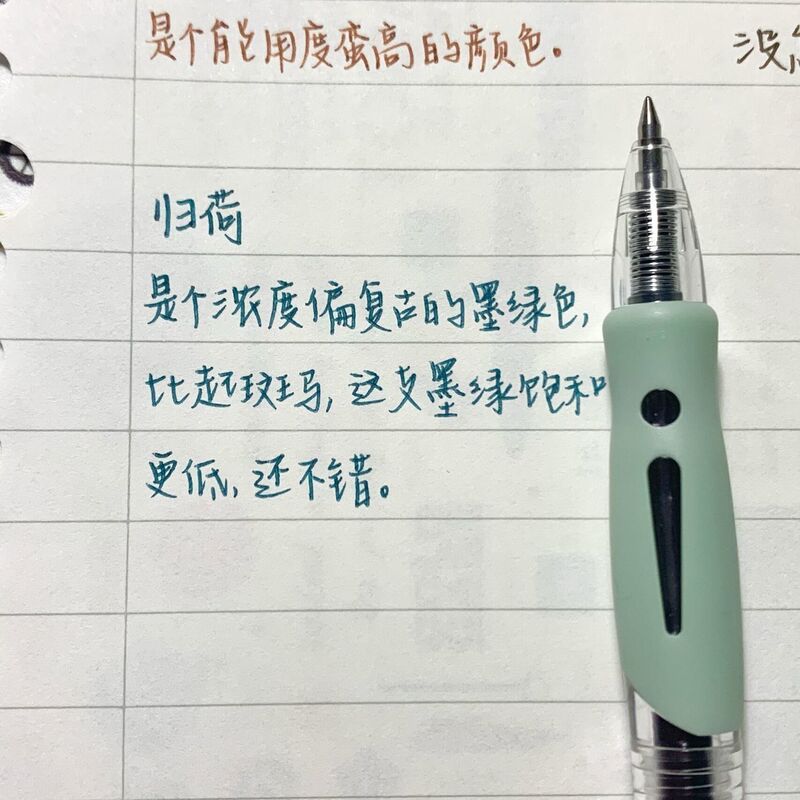 是个能用度蛮高的颜色。
没
归荷
是个浓度偏复古的墨绿色,
比起玟玛,这支墨绿饱和
更低,还不错。